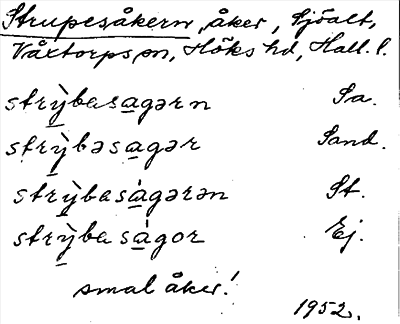 Strupesåkern, åker, Sjöalt,
Våxtorps sn, Höks hd, Hall. l.
strỳbasagərn Sa.
strỳbəsagər Sand.
strỳbasàgərən St.
strỳbasàgor Ej.
smal åker!
1952.